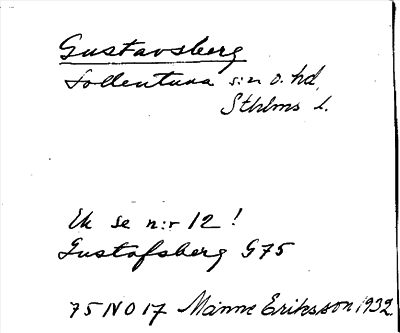 Gustavsberg
Sollentuna s:n o. hd,
Sthlms l.
Ek se n:r 12!
Gustafsberg G75
75 NO 17 Manne Eriksson 1932